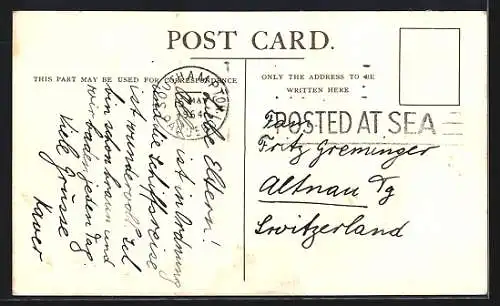 POST CARD.
THIS PART MAY BE USED FOR CORRESPONDENCE
ONLY THE ADDRESS TO BE
WRITTEN HERE
MAY
POSTED AT SEA
Liebe Eltern!
ist in Ordnung
und die Schiffsreise
ist wundervoll. Ich
bin schon braun und
wir baden jeden Tag.
Viele Grüsse
Xaver
Fam.
Fritz Greminger
Altnau Tg
Switzerland